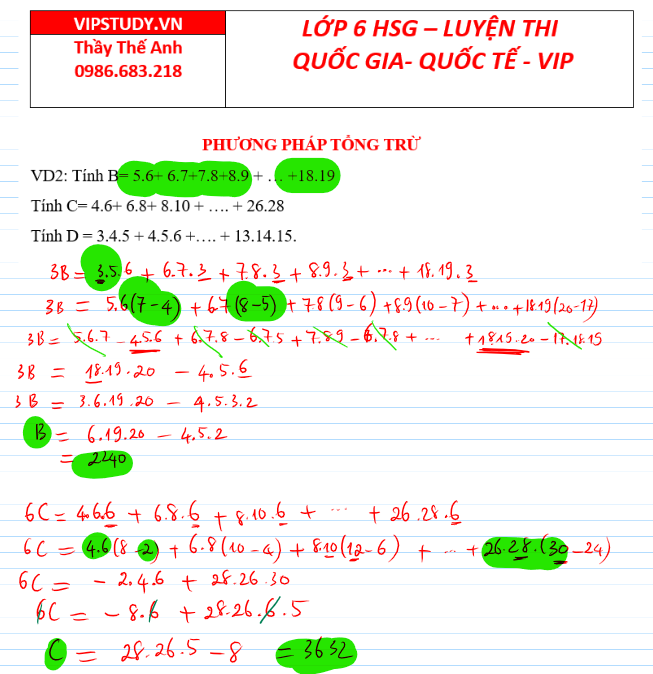 VIPSTUDY.VN
Thầy Thế Anh
0986.683.218
LỚP 6 HSG – LUYỆN THI
QUỐC GIA- QUỐC TẾ - VIP
PHƯƠNG PHÁP TỔNG TRỪ
VD2: Tính B= 5.6+ 6.7+7.8+8.9 + … +18.19
Tính C= 4.6+ 6.8+ 8.10 + …. + 26.28
Tính D = 3.4.5 + 4.5.6 +…. + 13.14.15.
3B = 3.5.6 + 6.7.3 + 7.8.3 + 8.9.3 + ... + 18.19.3
3B = 5.6(7-4) + 6.7(8-5) + 7.8(9-6) + 8.9(10-7) + ... + 18.19(20-17)
3B = 5.6.7 - 4.5.6 + 6.7.8 - 6.7.5 + 7.8.9 - 6.7.8 + ... + 18.19.20 - 17.18.19
3B = 18.19.20 - 4.5.6
3B = 3.6.19.20 - 4.5.3.2
B = 6.19.20 - 4.5.2
= 2240
6C = 4.6.6 + 6.8.6 + 8.10.6 + ... + 26.28.6
6C = 4.6(8-2) + 6.8(10-4) + 8.10(12-6) + ... + 26.28.(30-24)
6C = - 2.4.6 + 28.26.30
6C = - 8.6 + 28.26.6.5
C = 28.26.5 - 8 = 3632